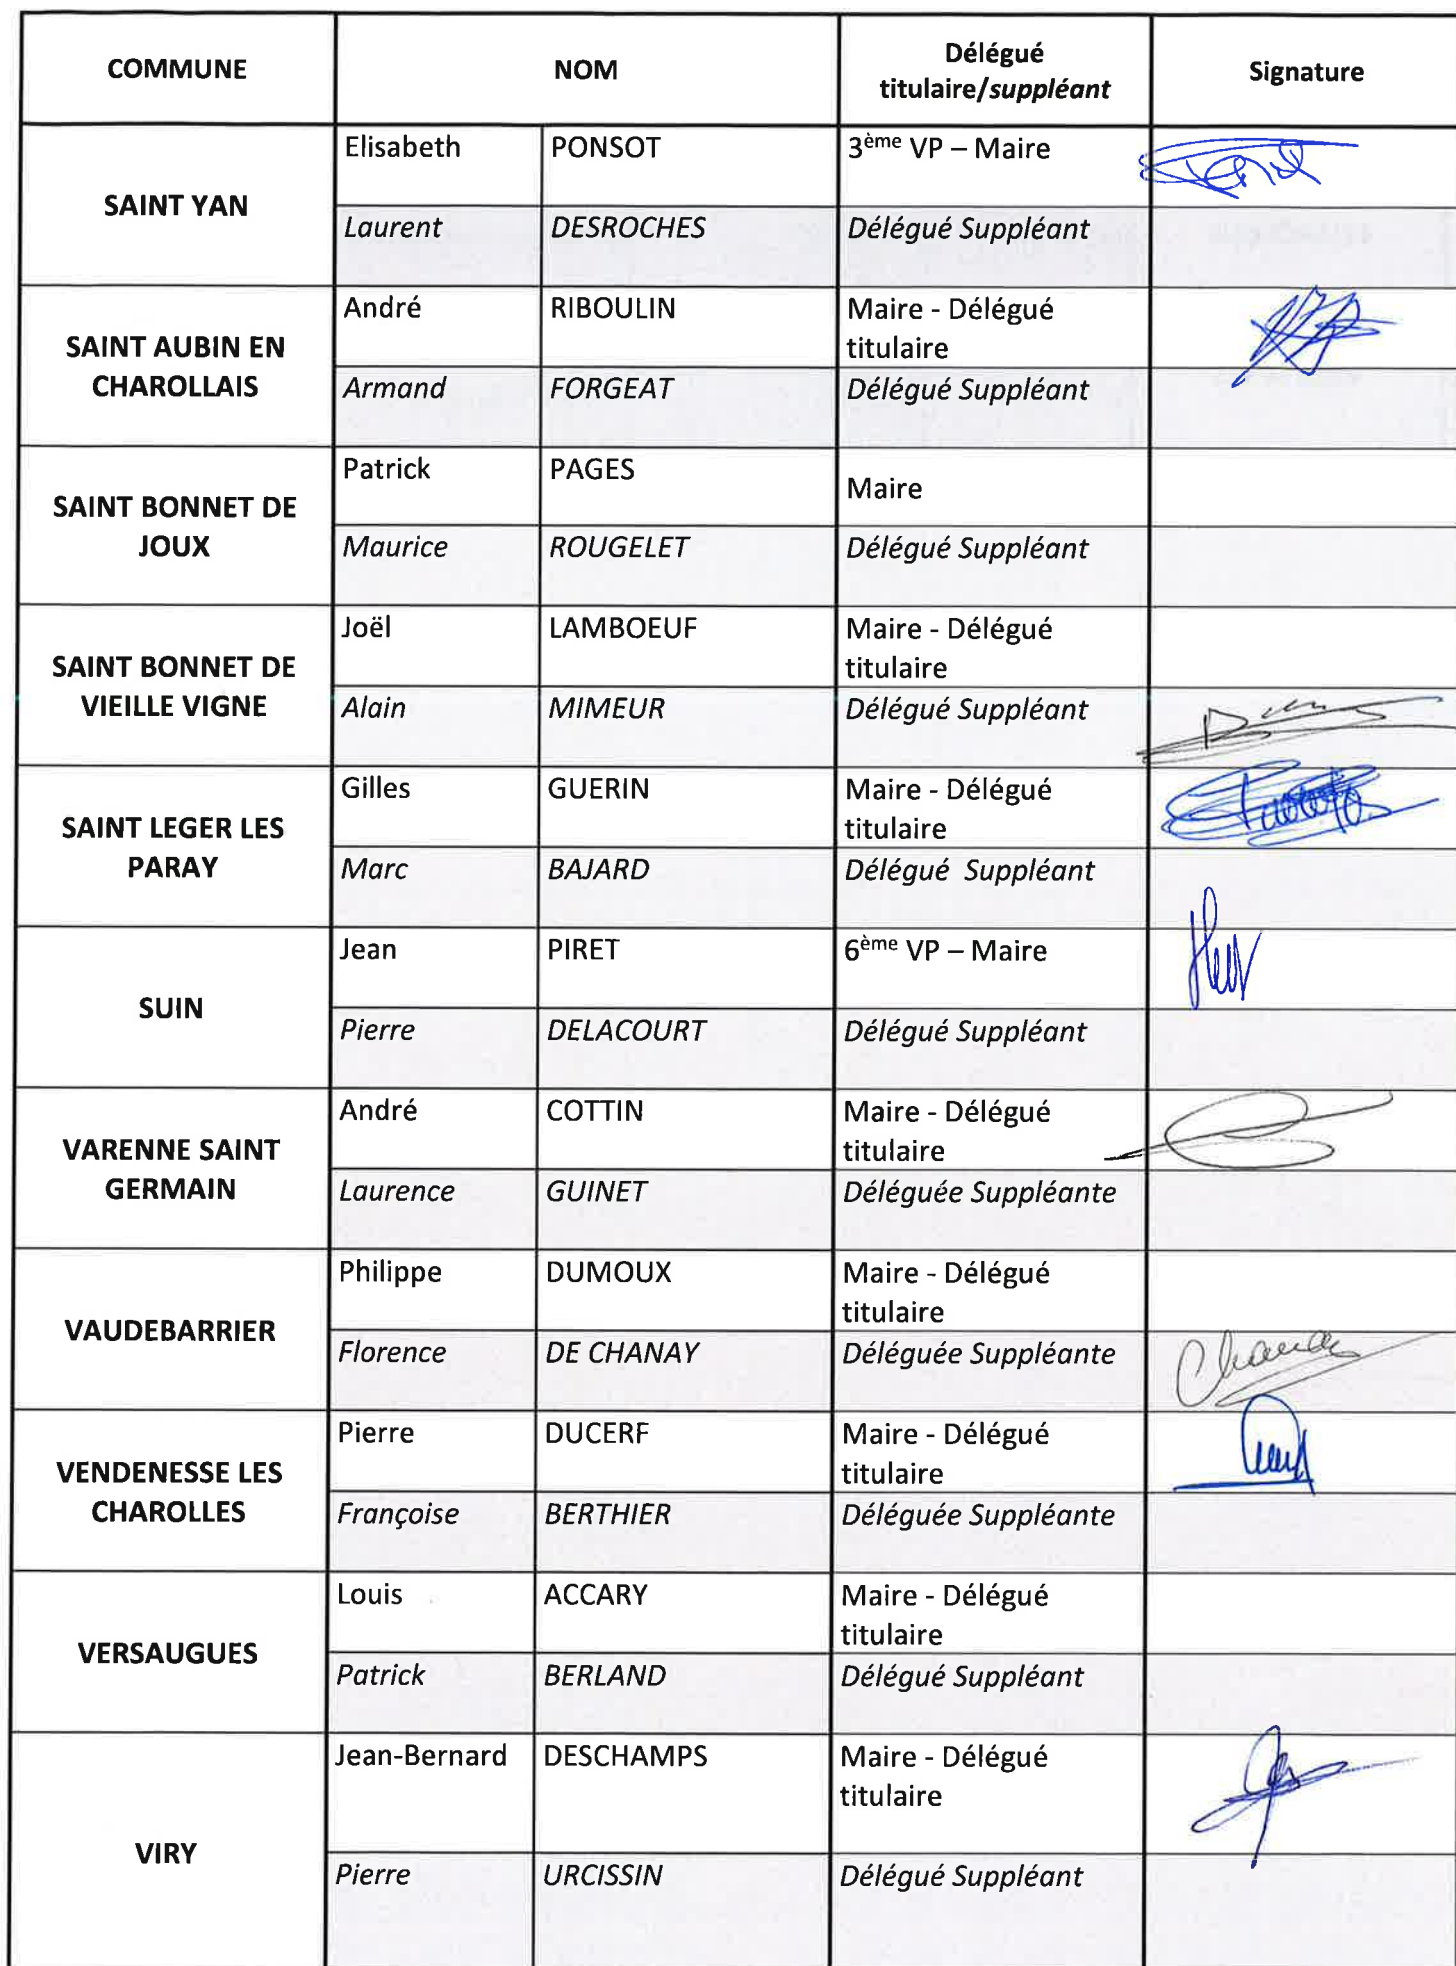 COMMUNE NOM Délégué titulaire/suppléant Signature
SAINT YAN
Elisabeth PONSOT 3ème VP – Maire
Laurent DESROCHES Délégué Suppléant
SAINT AUBIN EN CHAROLLAIS
André RIBOULIN Maire - Délégué titulaire
Armand FORGEAT Délégué Suppléant
SAINT BONNET DE JOUX
Patrick PAGES Maire
Maurice ROUGELET Délégué Suppléant
SAINT BONNET DE VIEILLE VIGNE
Joël LAMBOEUF Maire - Délégué titulaire
Alain MIMEUR Délégué Suppléant
SAINT LEGER LES PARAY
Gilles GUERIN Maire - Délégué titulaire
Marc BAJARD Délégué Suppléant
SUIN
Jean PIRET 6ème VP – Maire
Pierre DELACOURT Délégué Suppléant
VARENNE SAINT GERMAIN
André COTTIN Maire - Délégué titulaire
Laurence GUINET Déléguée Suppléante
VAUDEBARRIER
Philippe DUMOUX Maire - Délégué titulaire
Florence DE CHANAY Déléguée Suppléante
VENDENESSE LES CHAROLLES
Pierre DUCERF Maire - Délégué titulaire
Françoise BERTHIER Déléguée Suppléante
VERSAUGUES
Louis ACCARY Maire - Délégué titulaire
Patrick BERLAND Délégué Suppléant
VIRY
Jean-Bernard DESCHAMPS Maire - Délégué titulaire
Pierre URCISSIN Délégué Suppléant